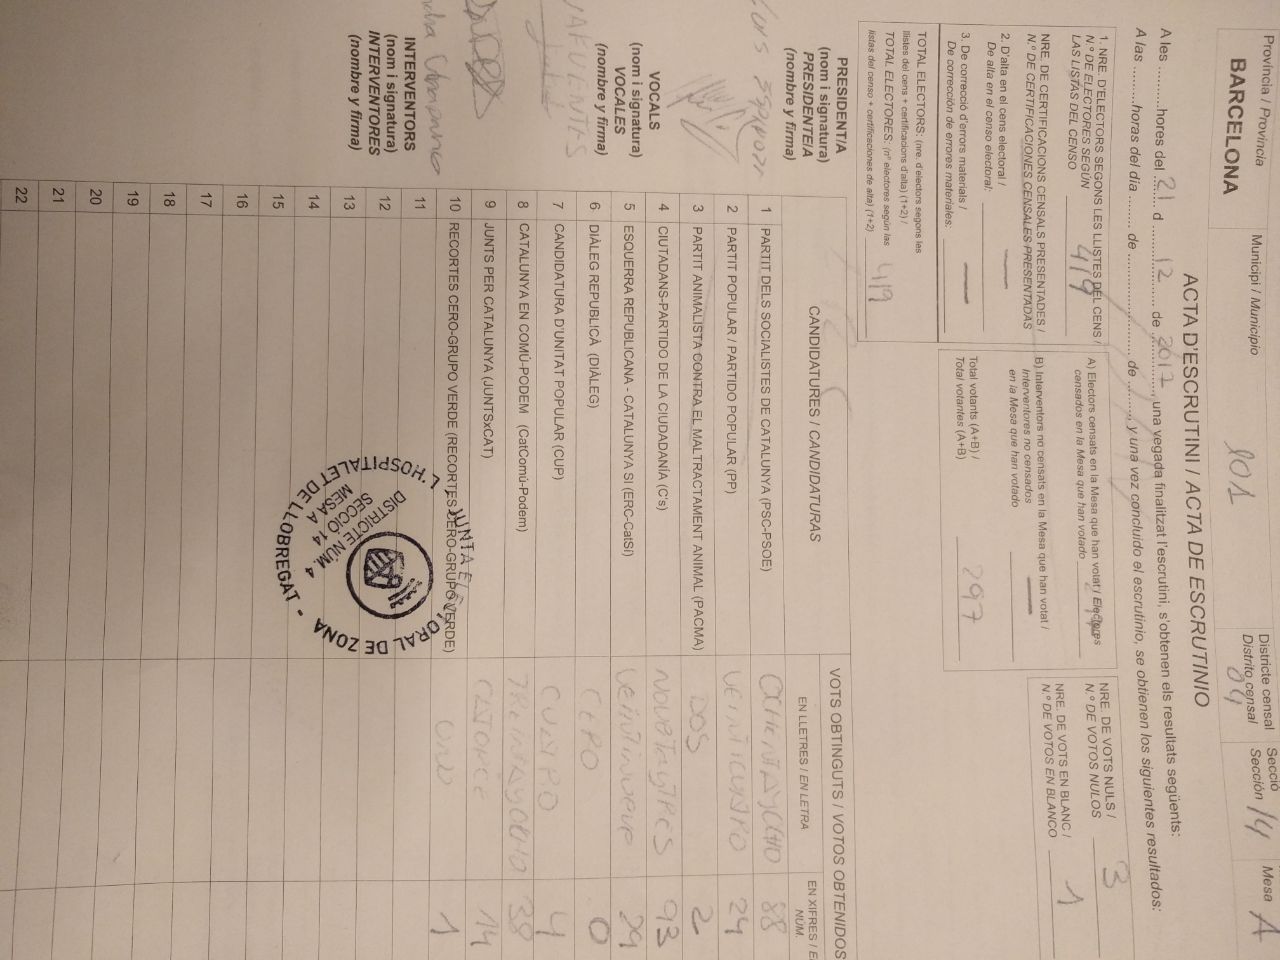 Província / Provincia
BARCELONA
Municipi / Municipio
101
Districte censal
Distrito censal
04
Secció
Sección 14
Mesa A
ACTA D'ESCRUTINI / ACTA DE ESCRUTINIO
A les ............hores del 21 d ............ 12 ........ de 2017, una vegada finalitzat l'escrutini, s'obtenen els resultats següents:
A las .........horas del día ......... de ........................ de ........, y una vez concluido el escrutinio, se obtienen los siguientes resultados:
1. NRE. D'ELECTORS SEGONS LES LLISTES DEL CENS /
N.º DE ELECTORES SEGÚN
LAS LISTAS DEL CENSO
419
NRE. DE CERTIFICACIONS CENSALS PRESENTADES /
N.º DE CERTIFICACIONES CENSALES PRESENTADAS
2. D'alta en el cens electoral /
De alta en el censo electoral: —
3. De correcció d'errors materials /
De corrección de errores materiales: —
TOTAL ELECTORS: (nre. d'electors segons les
llistes del cens + certificacions d'alta) (1+2) /
TOTAL ELECTORES: (nº electores según las
listas del censo + certificaciones de alta) (1+2) 419
A) Electors censats en la Mesa que han votat / Electores
censados en la Mesa que han votado
B) Interventors no censats en la Mesa que han votat /
Interventores no censados
en la Mesa que han votado —
Total votants (A+B) /
Total votantes (A+B) 297
NRE. DE VOTS NULS /
N.º DE VOTOS NULOS 3
NRE. DE VOTS EN BLANC /
N.º DE VOTOS EN BLANCO 1
CANDIDATURES / CANDIDATURAS
VOTS OBTINGUTS / VOTOS OBTENIDOS
EN LLETRES / EN LETRA
EN XIFRES / E
NÚM.
1 PARTIT DELS SOCIALISTES DE CATALUNYA (PSC-PSOE) OCHENTAYOCHO 88
2 PARTIT POPULAR / PARTIDO POPULAR (PP) VEINTICUATRO 24
3 PARTIT ANIMALISTA CONTRA EL MALTRACTAMENT ANIMAL (PACMA) DOS 2
4 CIUTADANS-PARTIDO DE LA CIUDADANÍA (C's) NOVENTAYTRES 93
5 ESQUERRA REPUBLICANA - CATALUNYA SI (ERC-CatSI) Veintinueve 29
6 DIÀLEG REPUBLICÀ (DIÀLEG) CERO 0
7 CANDIDATURA D'UNITAT POPULAR (CUP) CUATRO 4
8 CATALUNYA EN COMÚ-PODEM (CatComú-Podem) TREINTAYOCHO 38
9 JUNTS PER CATALUNYA (JUNTSxCAT) CATORCE 14
10 RECORTES CERO-GRUPO VERDE (RECORTES CERO-GRUPO VERDE) UNO 1
11
12
13
14
15
16
17
18
19
20
21
22
JUNTA ELECTORAL DE ZONA - L'HOSPITALET DE LLOBREGAT -
DISTRICTE NÚM. 4
SECCIÓ 14
MESA A
PRESIDENT/A
(nom i signatura)
PRESIDENTE/A
(nombre y firma)
VOCALS
(nom i signatura)
VOCALES
(nombre y firma)
INTERVENTORS
(nom i signatura)
INTERVENTORES
(nombre y firma)